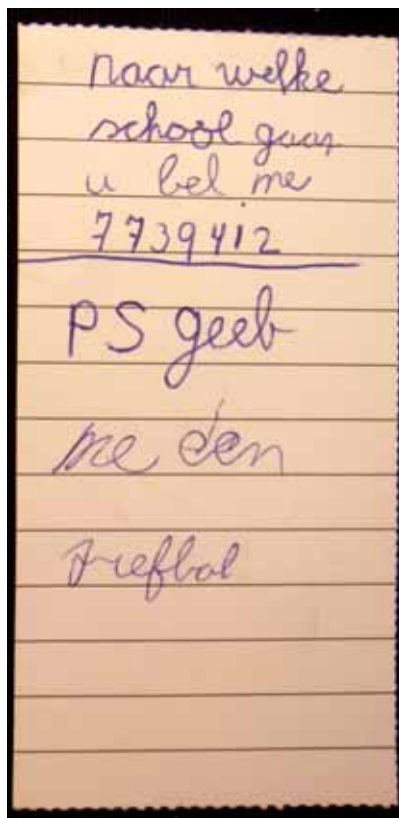 naar welke
school gaan
u bel me
7739412
PS geeb
me één
trefbal